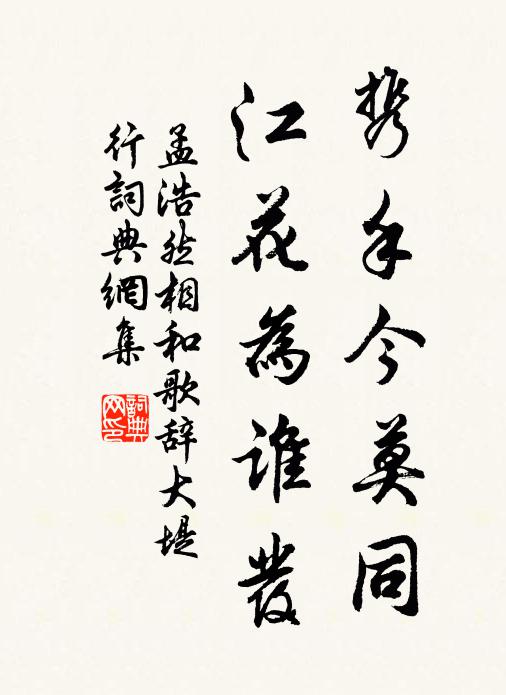 携手今莫同
江花為誰發
孟浩然相和歌辞大堤
行詞典網集
詞典網印